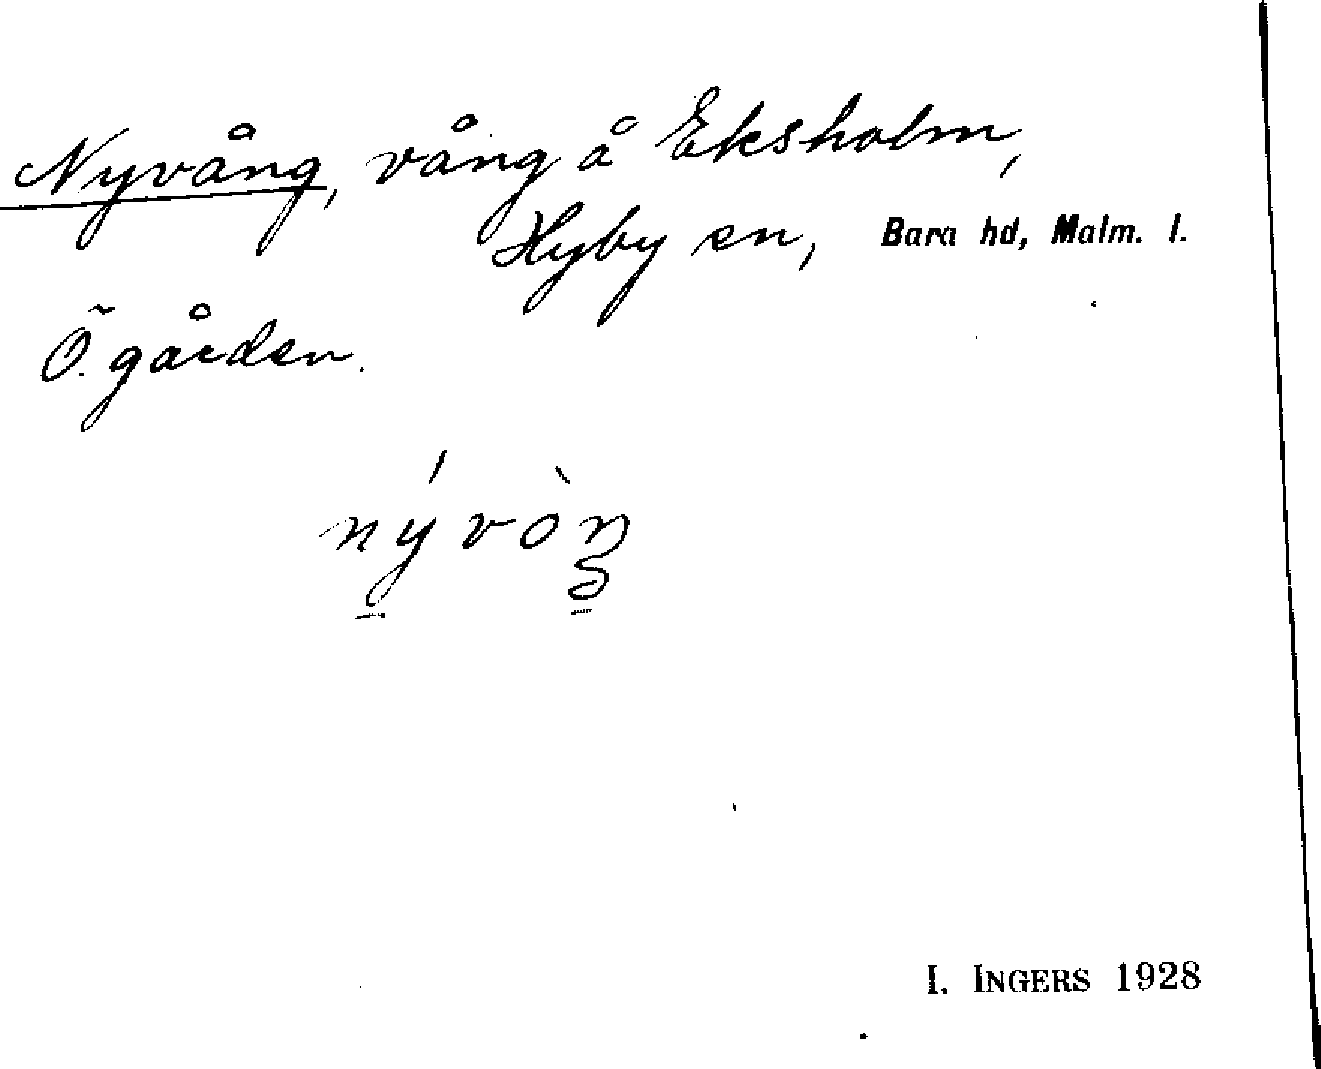 Nyvång, vång å Eksholm,
Hyby sn, Bara hd, Malm. l.
Ö. gården.
nývòŋ
I. INGERS 1928